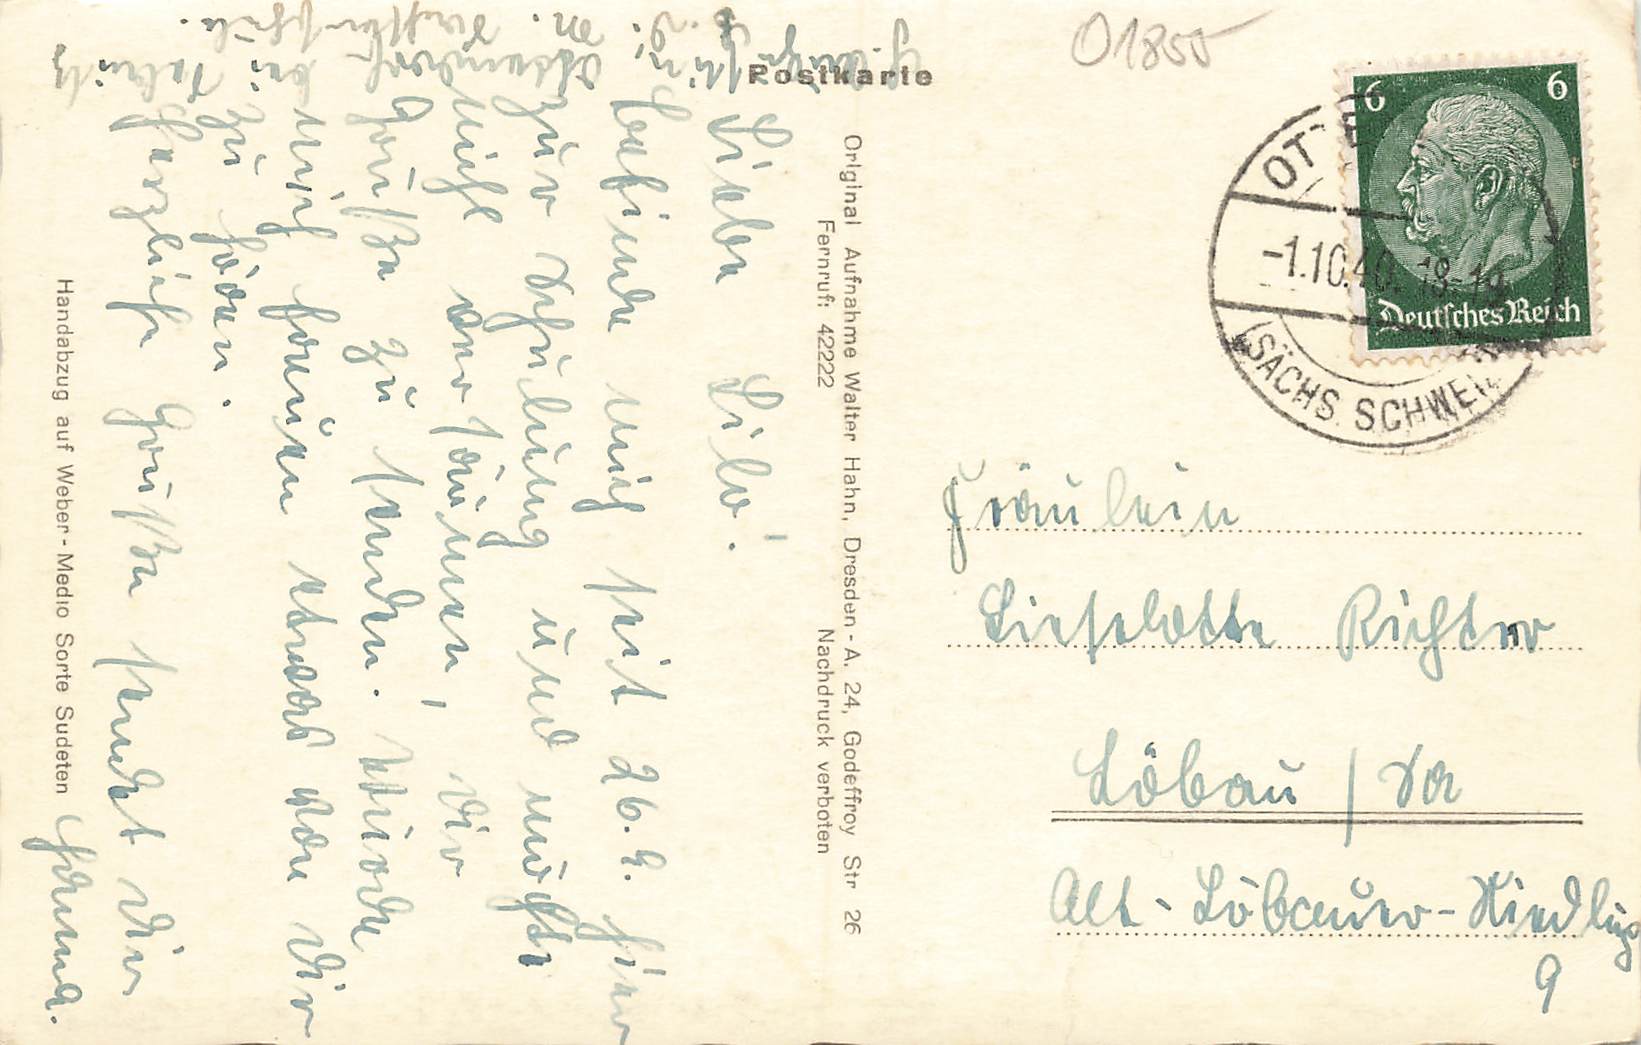 Postkarte
O1855
6 6
Deutsches Reich
-1.10.40. 18-19
(SÄCHS. SCHWEIZ)
Original Aufnahme Walter Hahn, Dresden-A. 24, Godeffroy Str 26
Fernruf: 42222 Nachdruck verboten
Handabzug auf Weber-Medio Sorte Sudeten
Liebe Lilo!
Befinde mich seit 26.9. hier
zur Schulung und möchte
nicht versäumen, Dir
Grüße zu senden. Würde
mich freuen etwas von Dir
zu hören.
Herzliche Grüße sendet Dir
Fräulein
Lieselotte Richter
Löbau / Sa
Alt-Löbauer-Siedlung
9